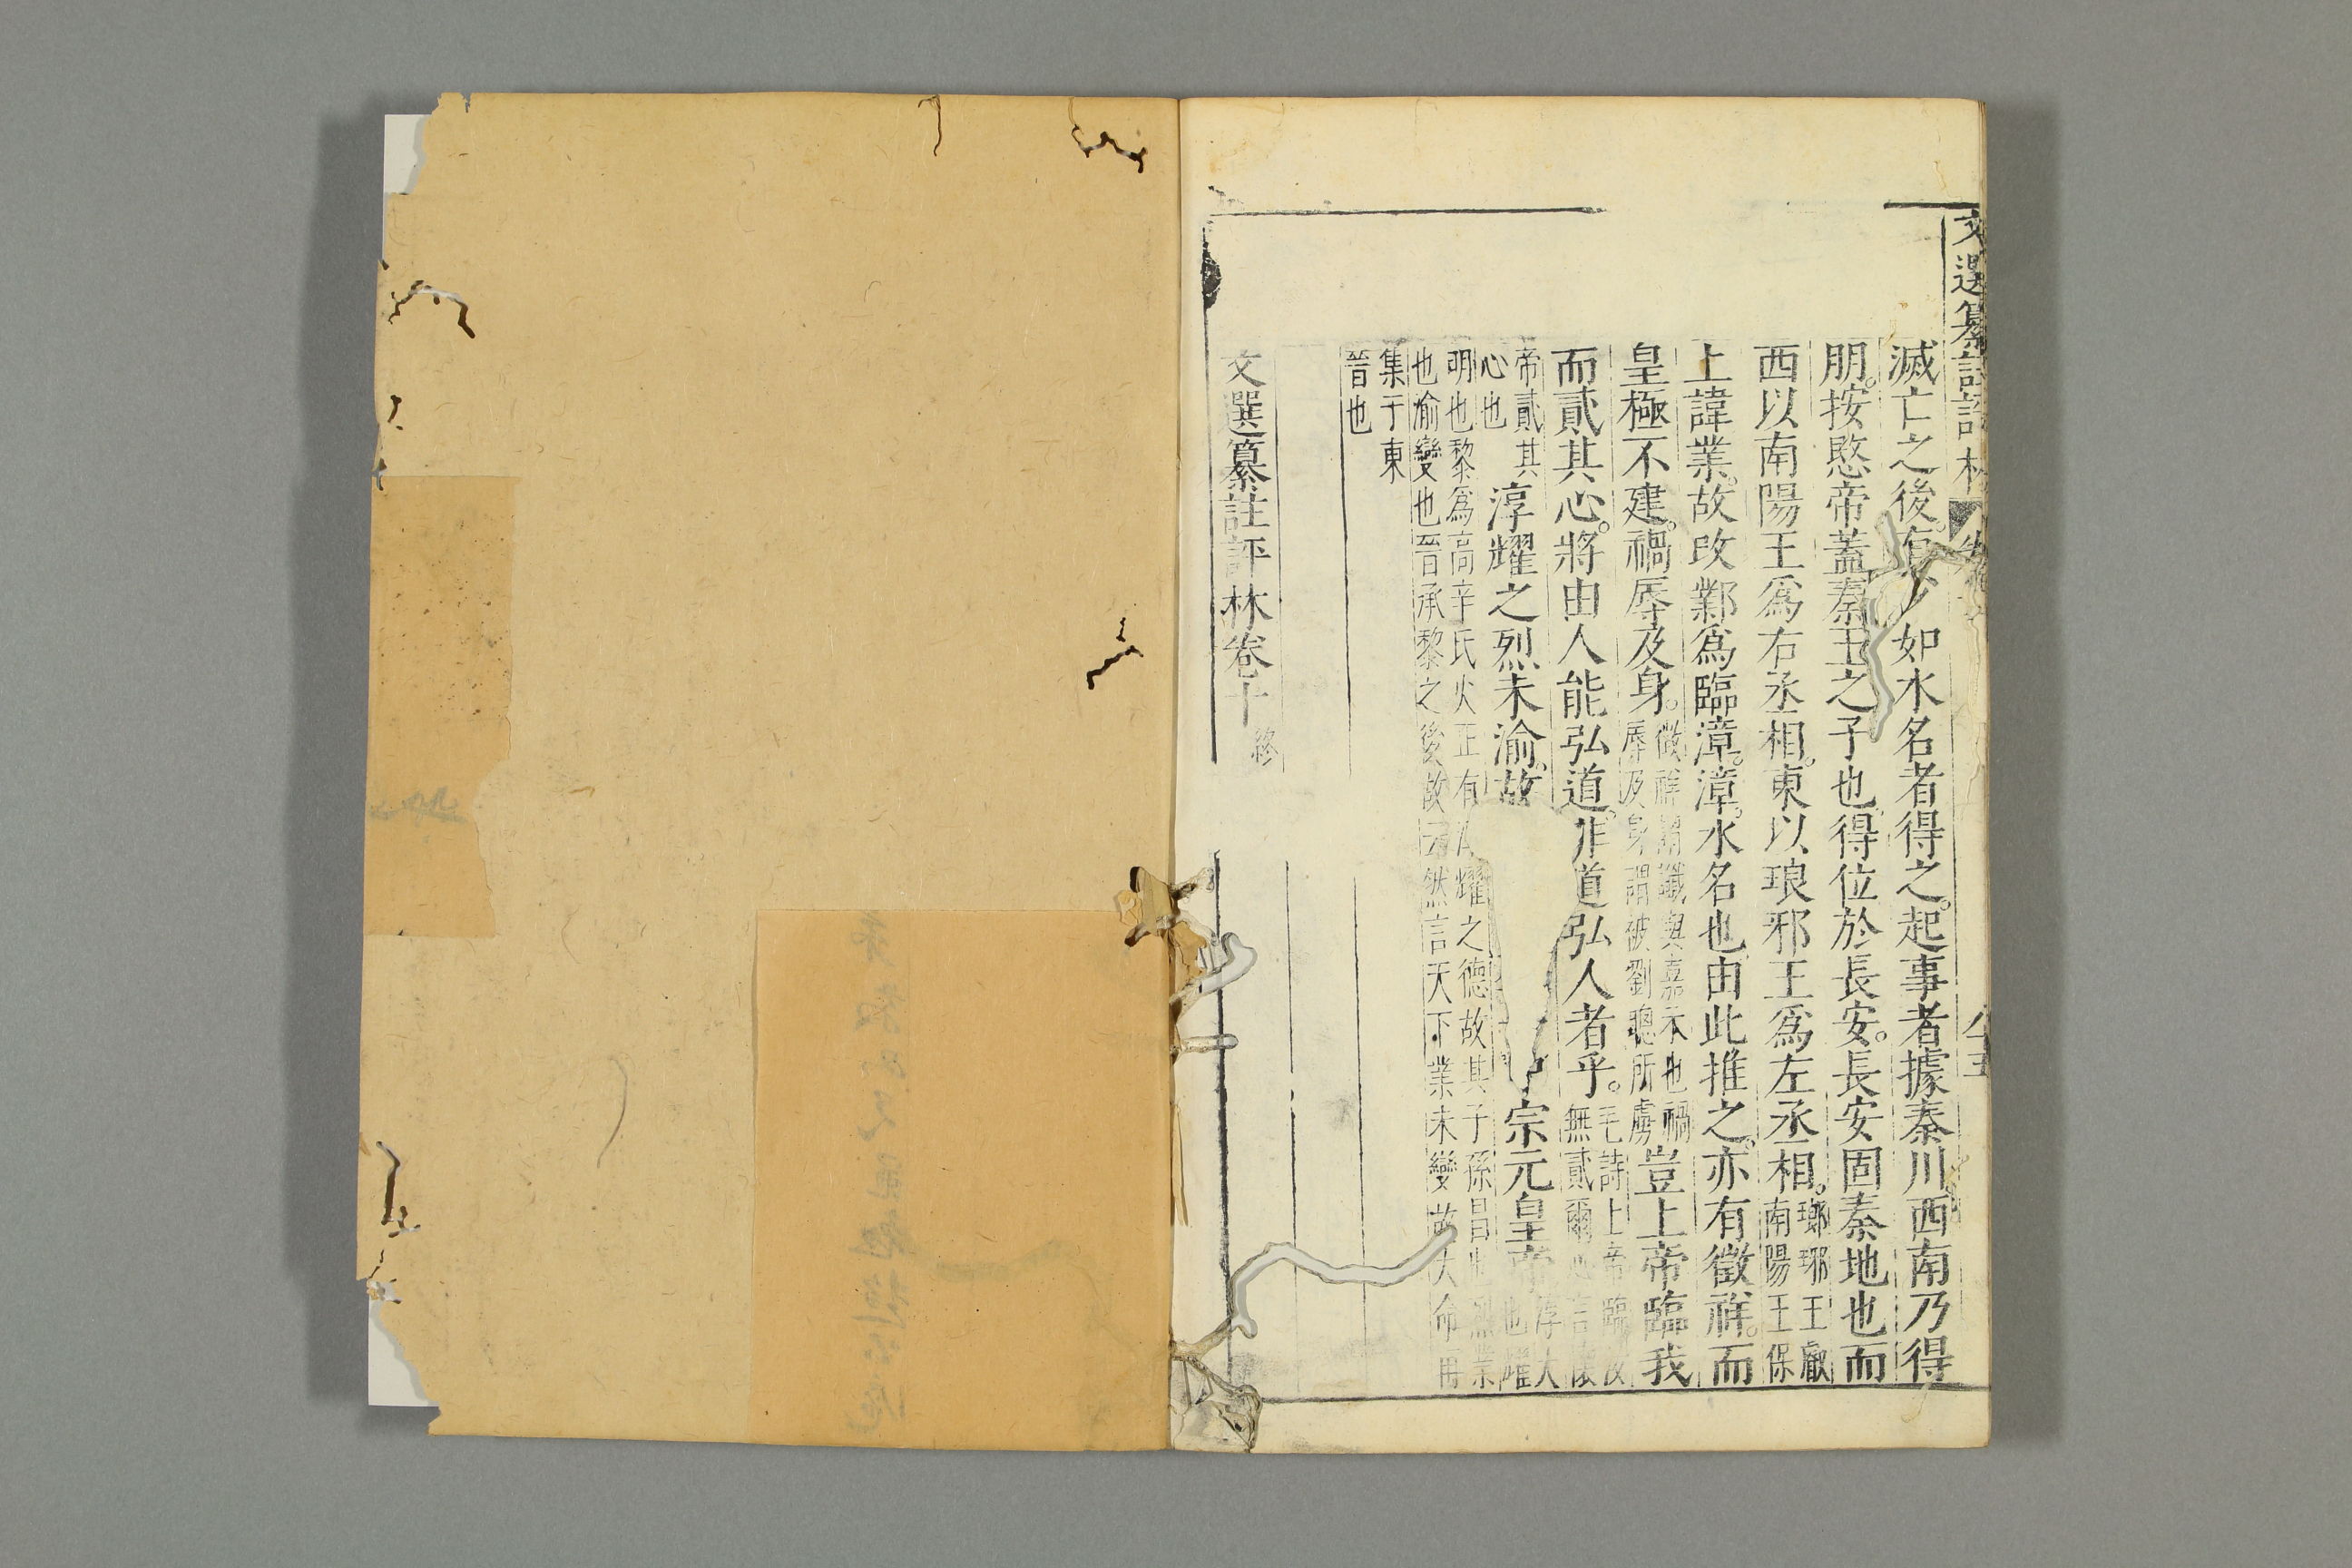 文選纂註評林 卷
滅亡之後有少如水名者得之起事者據秦川西南乃得
朋按愍帝蓋秦王之子也得位於長安長安固秦地也而
西以南陽王爲右丞相東以琅邪王爲左丞相瑯琊王叡
南陽王保
上諱業故改鄴爲臨漳漳水名也由此推之亦有徵祥而
皇極不建禍辱及身徵祥謂讖與嘉禾也禍
辱及身謂被劉聰所虜豈上帝臨我
而貳其心將由人能弘道非道弘人者乎毛詩上帝臨汝
無貳爾心言懷
帝貳其
心也淳耀之烈未渝故宗元皇帝淳大
也耀
明也黎爲高辛氏火正有耀之德故其子孫昌烈業
也渝變也晉承黎之後故云然言天下業未變故大命再
集于東
晉也
文選纂註評林卷十終